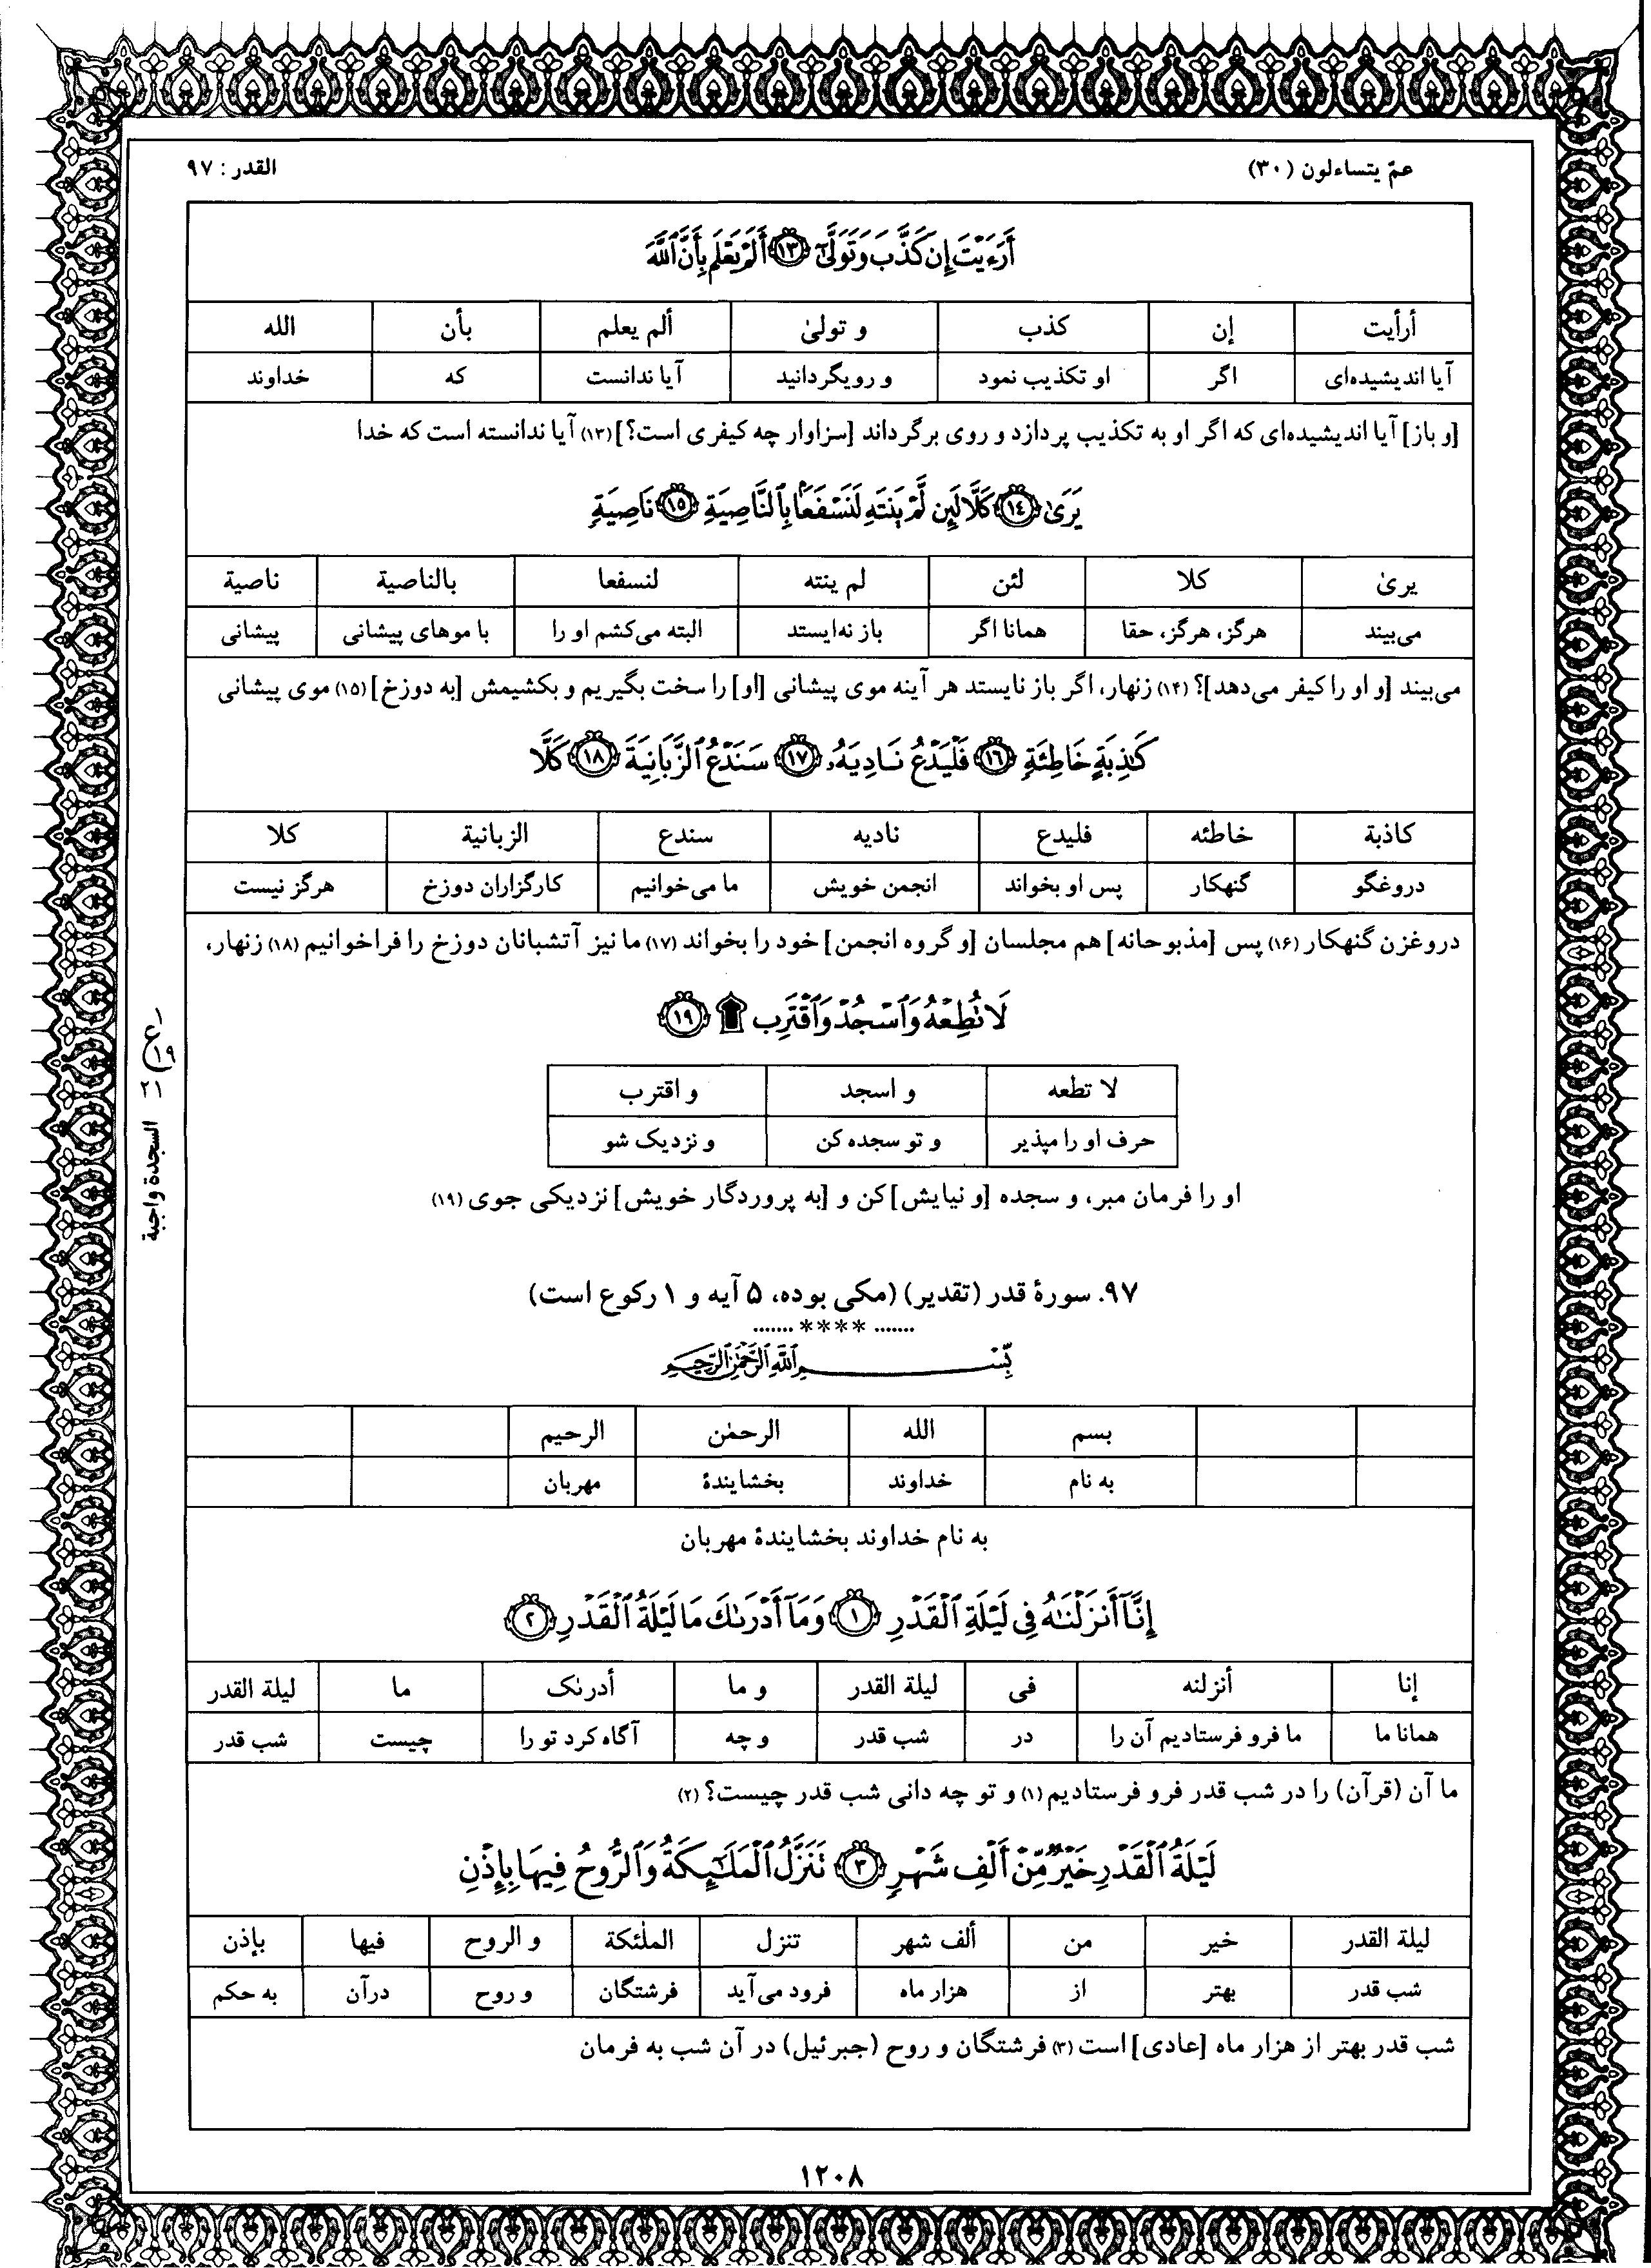 عمّ يتساءلون (۳۰)
القدر : ۹۷
أَرَءَيْتَ إِن كَذَّبَ وَتَوَلَّىٰٓ ١٣ أَلَمْ يَعْلَم بِأَنَّ ٱللَّهَ
أرأيت إن كذب و تولىٰ ألم يعلم بأن الله
آیا اندیشیده‌ای اگر او تکذیب نمود و رویگردانید آیا ندانست که خداوند
[و باز] آیا اندیشیده‌ای که اگر او به تکذیب پردازد و روی برگرداند [سزاوار چه کیفری است؟] (۱۳) آیا ندانسته است که خدا
يَرَىٰ ١٤ كَلَّا لَئِن لَّمْ يَنتَهِ لَنَسْفَعًۢا بِٱلنَّاصِيَةِ ١٥ نَاصِيَةٍ
يرىٰ كلا لئن لم ينته لنسفعا بالناصية ناصية
می‌بیند هرگز، هرگز، حقا همانا اگر باز نه‌ایستد البته می‌کشم او را با موهای پیشانی پیشانی
می‌بیند [و او را کیفر می‌دهد]؟ (۱۴) زنهار، اگر باز نایستد هر آینه موی پیشانی [او] را سخت بگیریم و بکشیمش [به دوزخ] (۱۵) موی پیشانی
كَٰذِبَةٍ خَاطِئَةٍ ١٦ فَلْيَدْعُ نَادِيَهُۥ ١٧ سَنَدْعُ ٱلزَّبَانِيَةَ ١٨ كَلَّا
كاذبة خاطئه فليدع ناديه سندع الزبانية كلا
دروغگو گنهکار پس او بخواند انجمن خویش ما می‌خوانیم کارگزاران دوزخ هرگز نیست
دروغزن گنهکار (۱۶) پس [مذبوحانه] هم مجلسان [و گروه انجمن] خود را بخواند (۱۷) ما نیز آتشبانان دوزخ را فراخوانیم (۱۸) زنهار،
لَا تُطِعْهُ وَٱسْجُدْ وَٱقْتَرِب ۩ ١٩
لا تطعه و اسجد و اقترب
حرف او را مپذیر و تو سجده کن و نزدیک شو
او را فرمان مبر، و سجده [و نیایش] کن و [به پروردگار خویش] نزدیکی جوی (۱۹)
ع
۱۹
۲۱
السجدة واجبة
۹۷. سورهٔ قدر (تقدیر) (مکی بوده، ۵ آیه و ۱ رکوع است)
....... **** .......
بِّسْمِ ٱللَّهِ ٱلرَّحْمَٰنِ ٱلرَّحِيمِ
بسم الله الرحمٰن الرحيم
به نام خداوند بخشایندهٔ مهربان
به نام خداوند بخشایندهٔ مهربان
إِنَّآ أَنزَلْنَٰهُ فِى لَيْلَةِ ٱلْقَدْرِ ١ وَمَآ أَدْرَىٰكَ مَا لَيْلَةُ ٱلْقَدْرِ ٢
إنا أنزلنه فى ليلة القدر و ما أدرىٰک ما ليلة القدر
همانا ما ما فرو فرستادیم آن را در شب قدر و چه آگاه کرد تو را چیست شب قدر
ما آن (قرآن) را در شب قدر فرو فرستادیم (۱) و تو چه دانی شب قدر چیست؟ (۲)
لَيْلَةُ ٱلْقَدْرِ خَيْرٌ مِّنْ أَلْفِ شَهْرٍ ٣ تَنَزَّلُ ٱلْمَلَٰٓئِكَةُ وَٱلرُّوحُ فِيهَا بِإِذْنِ
ليلة القدر خير من ألف شهر تنزل الملٰئكة و الروح فيها بإذن
شب قدر بهتر از هزار ماه فرود می‌آید فرشتگان و روح درآن به حکم
شب قدر بهتر از هزار ماه [عادی] است (۳) فرشتگان و روح (جبرئیل) در آن شب به فرمان
۱۲۰۸